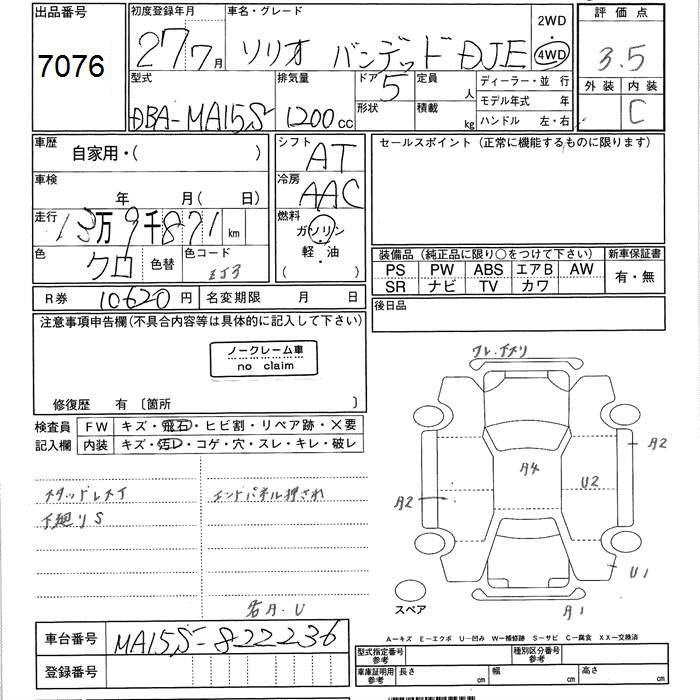 出品番号 初度登録年月 車名・グレード 2WD 評価点
7076 27 7月 ソリオ バンデッド DJE 4WD 3.5
型式 排気量 ドア 5 定員 人 ディーラー・並行 外装 内装
DBA-MA15S 1200cc 形状 積載 kg モデル年式 年 C
ハンドル 左・右
車歴 シフト セールスポイント (正常に機能するものに限ります)
自家用・( ) AT
車検 冷房
年 月(日) AAC
走行 13万9千871km 燃料 ガソリン
色 クロ 色替 色コード ZJ3 軽・油 ( )
装備品 (純正品に限り○をつけて下さい) 新車保証書
PS PW ABS エアB AW 有・無
SR ナビ TV カワ
R券 10620円 名変期限 月 日 後日品
注意事項申告欄(不具合内容等は具体的に記入して下さい)
ノークレーム車
no claim
修復歴 有 〔箇所
検査員 FW キズ・飛石・ヒビ割・リペア跡・×要
記入欄 内装 キズ・汚レ・コゲ・穴・スレ・キレ・破レ
スタッドレスタイ エンドパネル押され
下廻りS
A4
U2
A2
A2
U1
A1
スペア
A-キズ E-エクボ U-凹み W-補修跡 S-サビ C-腐食 XX-交換済
車台番号 MA15S-822236
登録番号
型式指定番号 参考 種別区分番号 参考
車庫証明用 参考 長さ cm 幅 cm 高さ cm